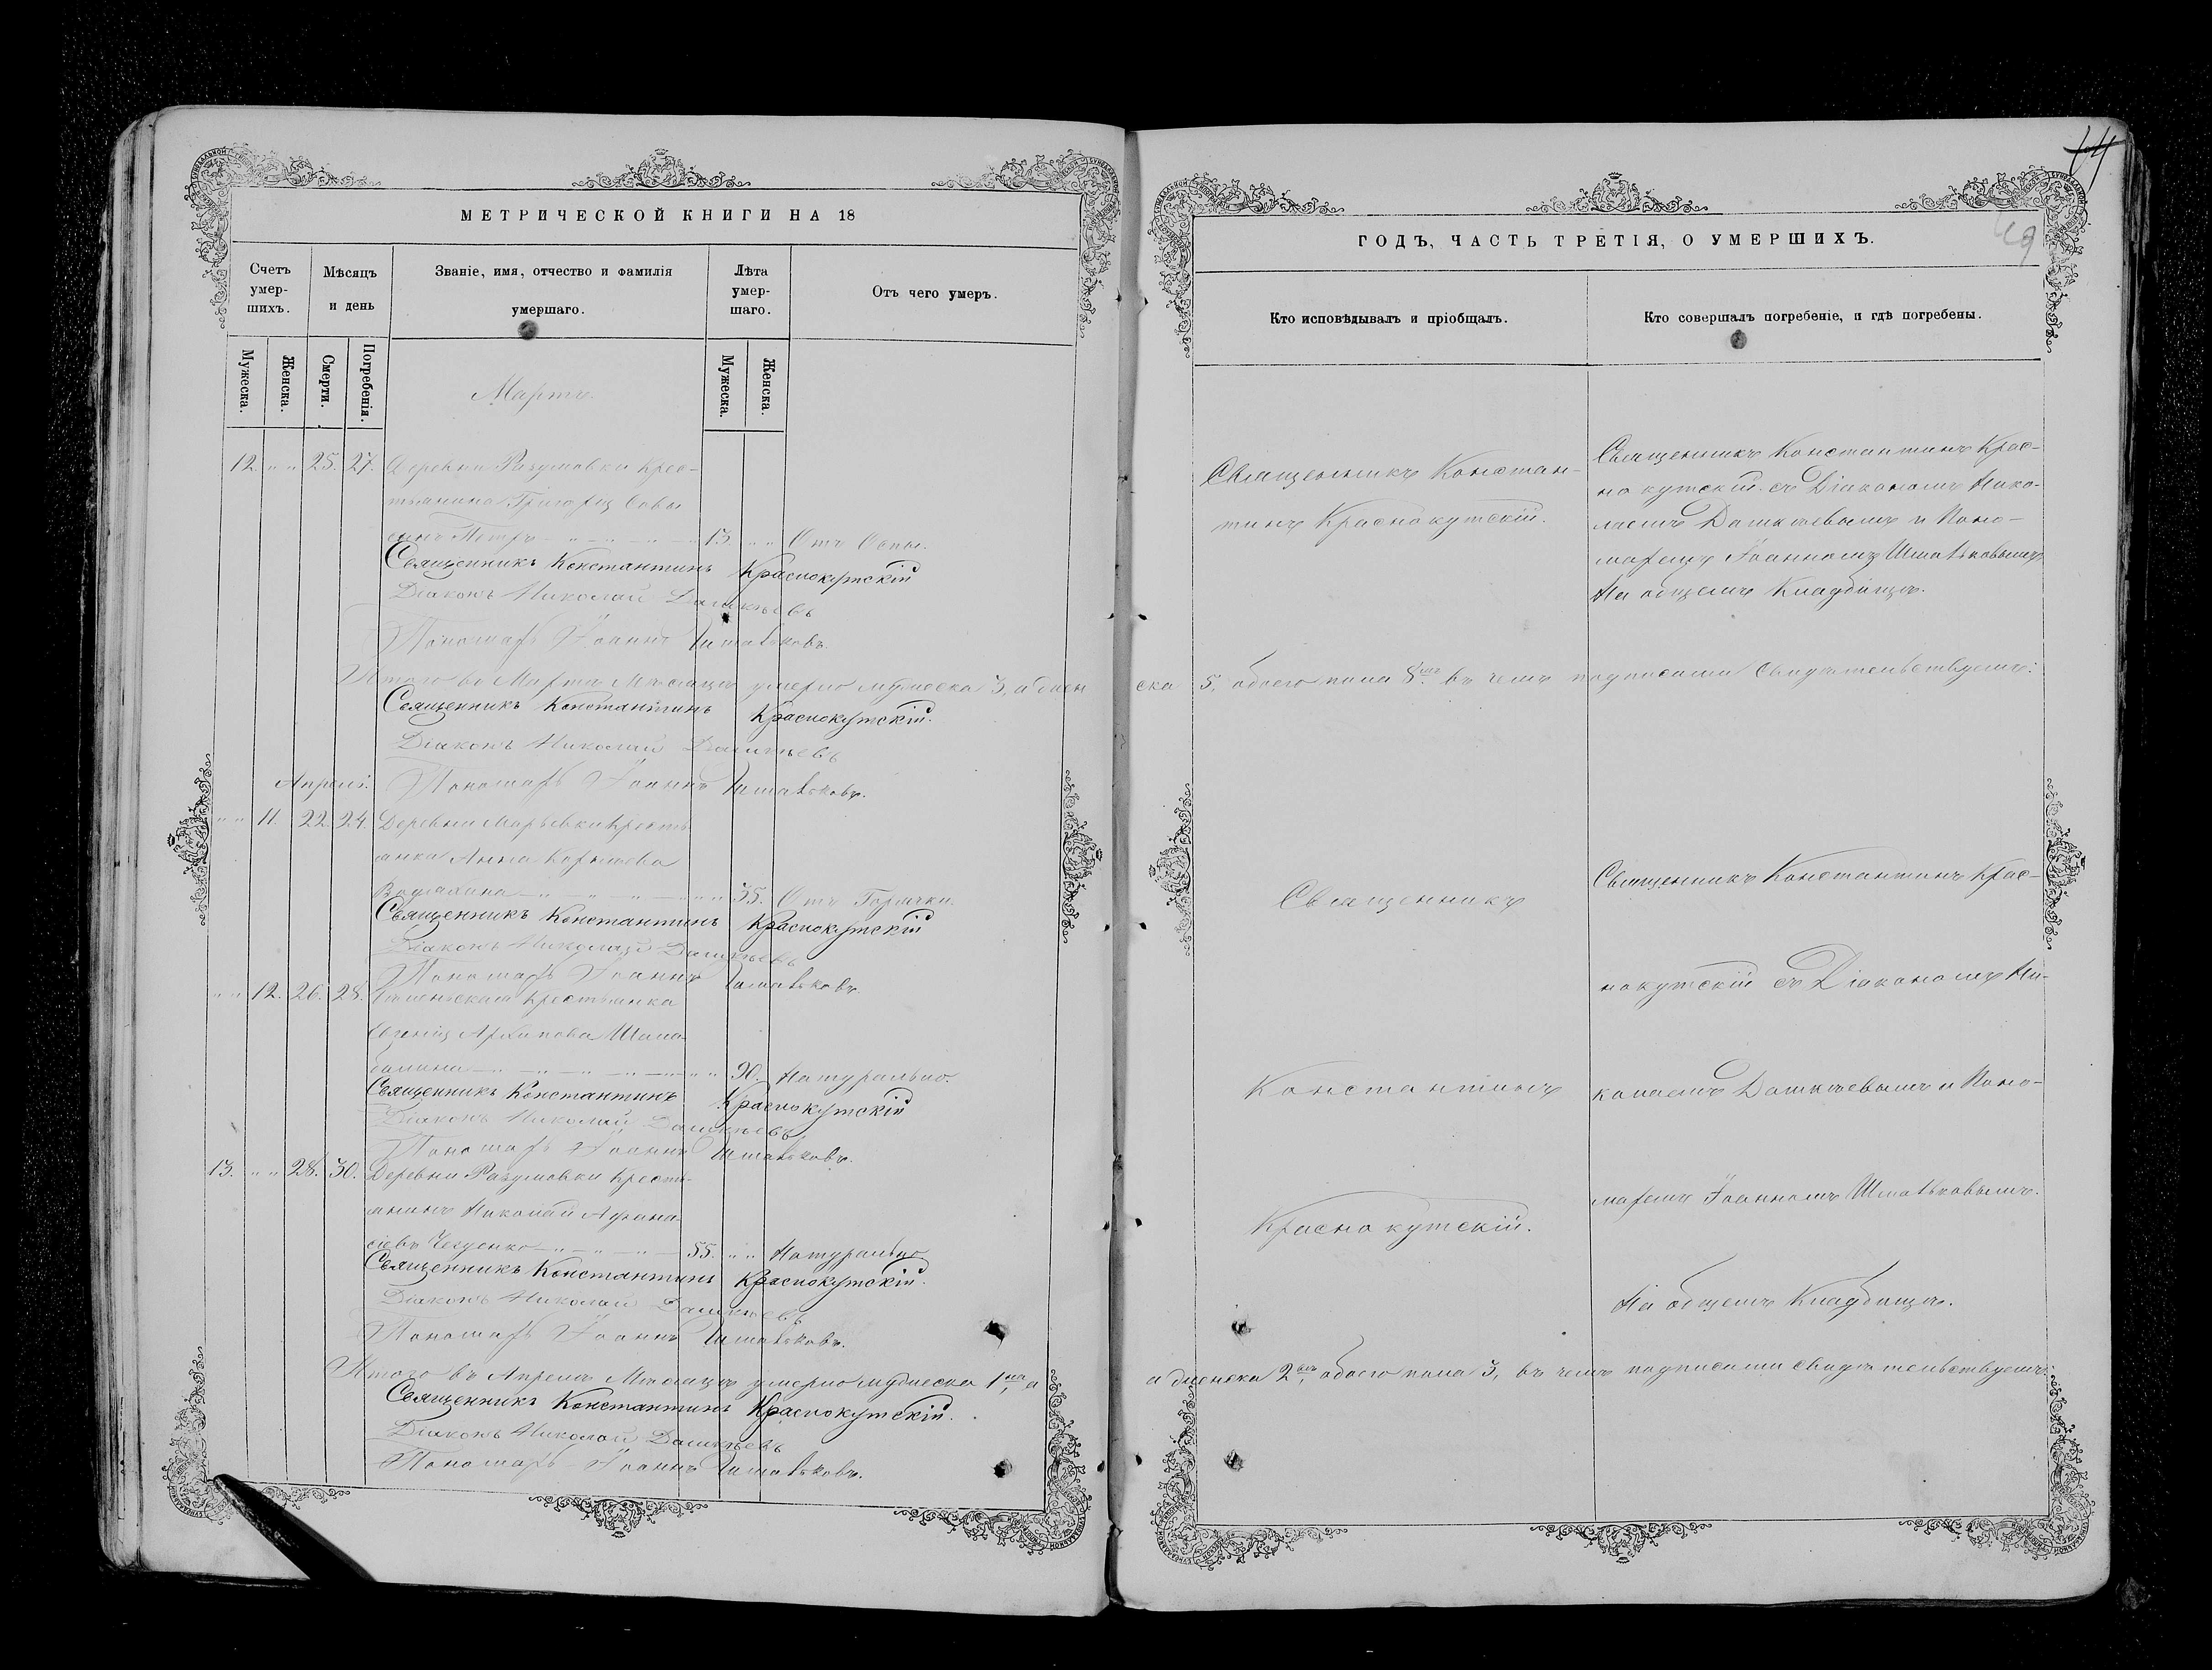 МЕТРИЧЕСКОЙ КНИГИ НА 18
Счетъ умер-шихъ.
Мѣсяцъ и день
Званіе, имя, отчество и фамилія умершаго.
Лѣта умер-шаго.
Отъ чего умеръ.
Мужеска.
Женска.
Смерти.
Погребенія.
Мужеска.
Женска.
Мартъ.
12. " " 25. 27. Деревни Разумовки Крес-
тьянина Григорія Совы
сынъ Петръ 13. " " Отъ Оспы.
Священникъ Константинъ Краснокутскій
Діаконъ Николай Дашкѣевъ
Пономарь Іоаннъ Шматьковъ.
Итого въ Мартѣ Мѣсяцѣ умерло мужеска 3, а жен
Священникъ Константинъ Краснокутскій.
Діаконъ Николай Дашкѣевъ
Апрель. Пономарь Іоаннъ Шматьковъ.
" " 11. 22. 24. Деревни Марьевки Кресть
янка Анна
35. Отъ Горячки.
Священникъ Константинъ Краснокутскій
Діаконъ Николай Дашкѣевъ
Пономарь Іоаннъ Шматьковъ.
" " 12. 26. 28. Крестьянка
Евгенія Архипова Шама
90. Натурально.
Священникъ Константинъ Краснокутскій
Діаконъ Николай Дашкѣевъ
Пономарь Іоаннъ Шматьковъ.
13. " " 28. 30. Деревни Разумовки Кресть-
янинъ Николай Афана
сіевъ 55. " " Натурально
Священникъ Константинъ Краснокутскій.
Діаконъ Николай Дашкѣевъ
Пономарь Іоаннъ Шматьковъ.
Итого въ Апрелѣ Мѣсяцѣ умерло мужеска 1, а
Священникъ Константинъ Краснокутскій.
Діаконъ Николай Дашкѣевъ
Пономарь Іоаннъ Шматьковъ.
ГОДЪ, ЧАСТЬ ТРЕТІЯ, О УМЕРШИХЪ.
Кто исповѣдывалъ и пріобщалъ.
Кто совершалъ погребеніе, и гдѣ погребены.
Священникъ Констан-
тинъ Краснокутскій.
Священникъ Константинъ Крас-
нокутскій съ Діакономъ Нико-
лаемъ Дашкѣевымъ и Поно-
маремъ Іоанномъ Шматьковымъ
На общемъ Кладбищѣ.
ска 5, обоего пола 8, въ чемъ подписами свидѣтельствуемъ:
Священникъ
Константинъ
Краснокутскій.
Священникъ Константинъ Крас-
нокутскій съ Діакономъ Ни-
колаемъ Дашкѣевымъ и Поно-
маремъ Іоанномъ Шматьковымъ.
На общемъ Кладбищѣ.
а женска 2, обоего пола 3, въ чемъ подписами свидѣтельствуемъ: